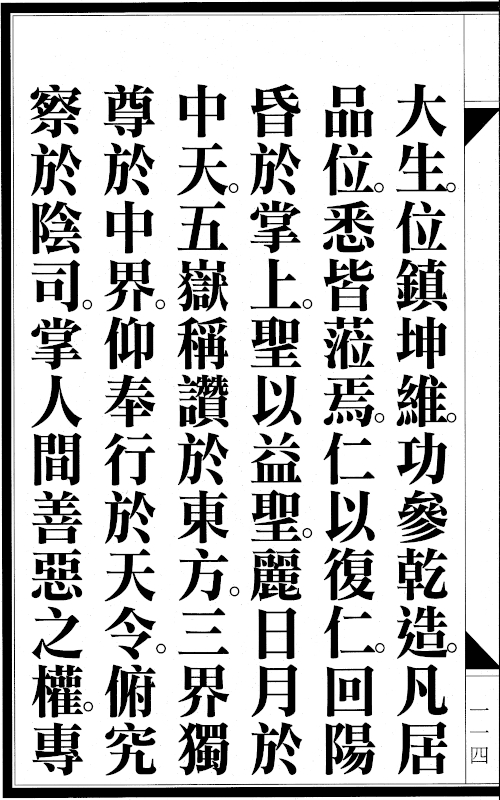 大生。位鎮坤維。功參乾造。凡居
品位。悉皆蒞焉。仁以復仁。回陽
昏於掌上。聖以益聖。麗日月於
中天。五嶽稱讚於東方。三界獨
尊於中界。仰奉行於天令。俯究
察於陰司。掌人間善惡之權。專
一一四